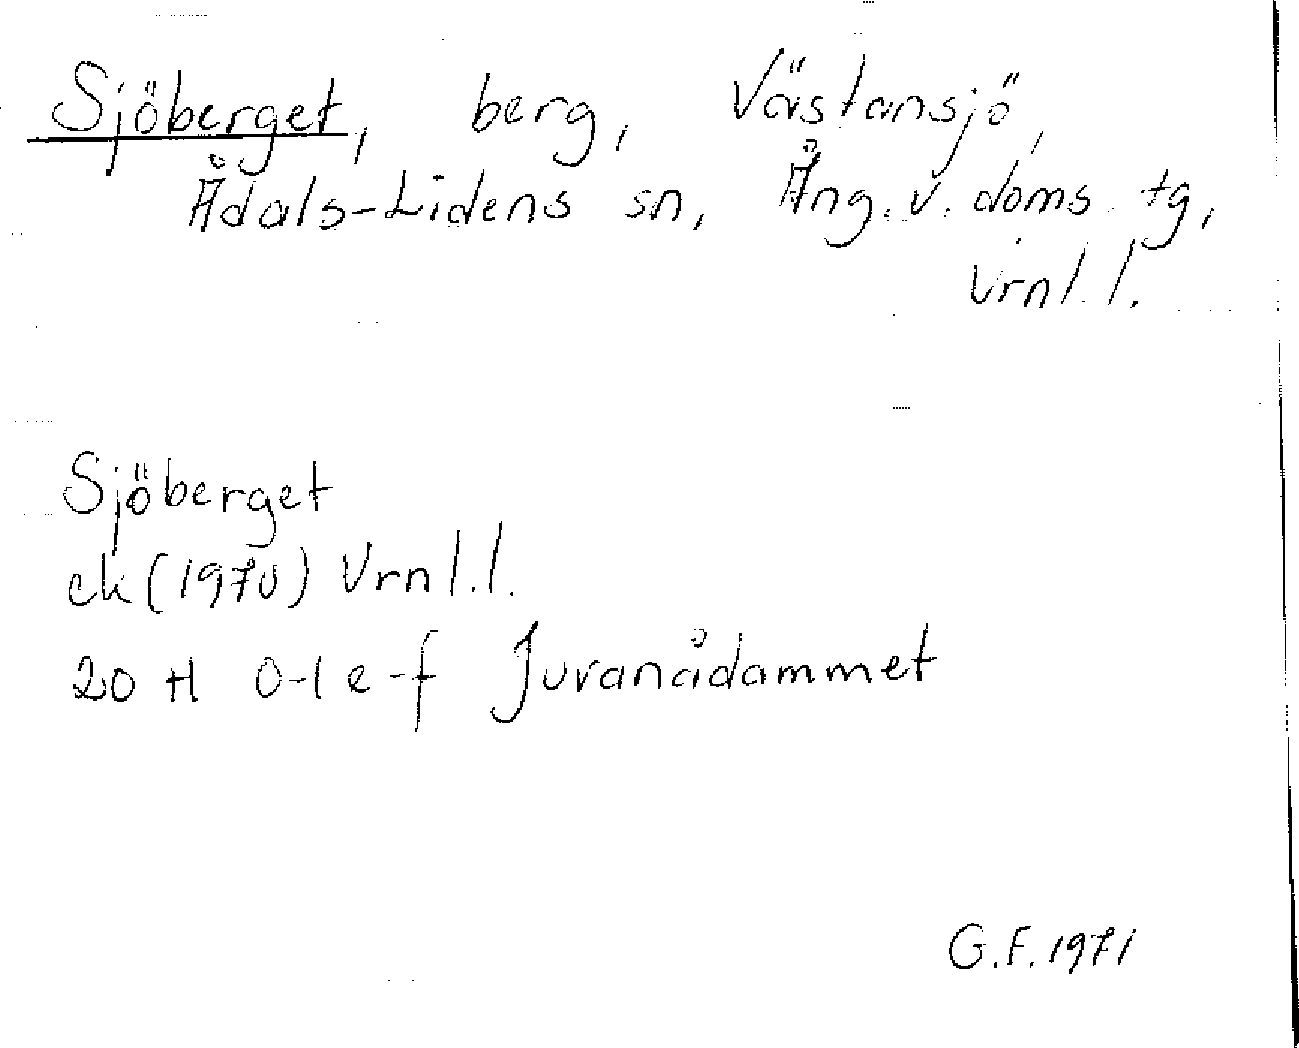 Sjöberget, berg, Västansjö,
Ådals-Lidens sn, Ång. v. doms. tg,
Vrnl. l.
Sjöberget
ek (1970) Vrnl. l.
20 H 0-1 e-f Juvanådammet
G.F. 1971